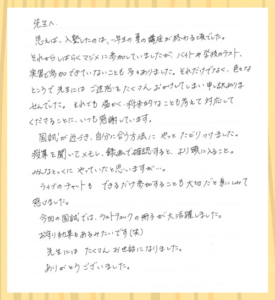 先生へ
思えば、入塾したのは、一年生の夏の講座が終わる頃でした。
それからしばらくマジメに参加していましたが、バイトや学校のテスト、
実習も参加できていないことも多々ありました。それだけでなく、色々な
ところで先生にはご迷惑をたくさんおかけしてしまい申し訳ありま
せんでした。それでも温かく、将来的なことも考えて対応して
くださることに、いつも感謝しています。
国試が近づき、自分に合う方法にやっとたどりつけました。
授業を聞いてメモし、録画で確認すると、より頭に入ること。
みんなとっくにやっていたと思いますが…
ライブのチャットもできるだけ参加することも大切だと身にしみて
感じました。
今回の国試では、ウルトラルックの冊子が大活躍しました。
お守り効果もあるみたいです(笑)
先生にはたくさんお世話になりました。
ありがとうございました。